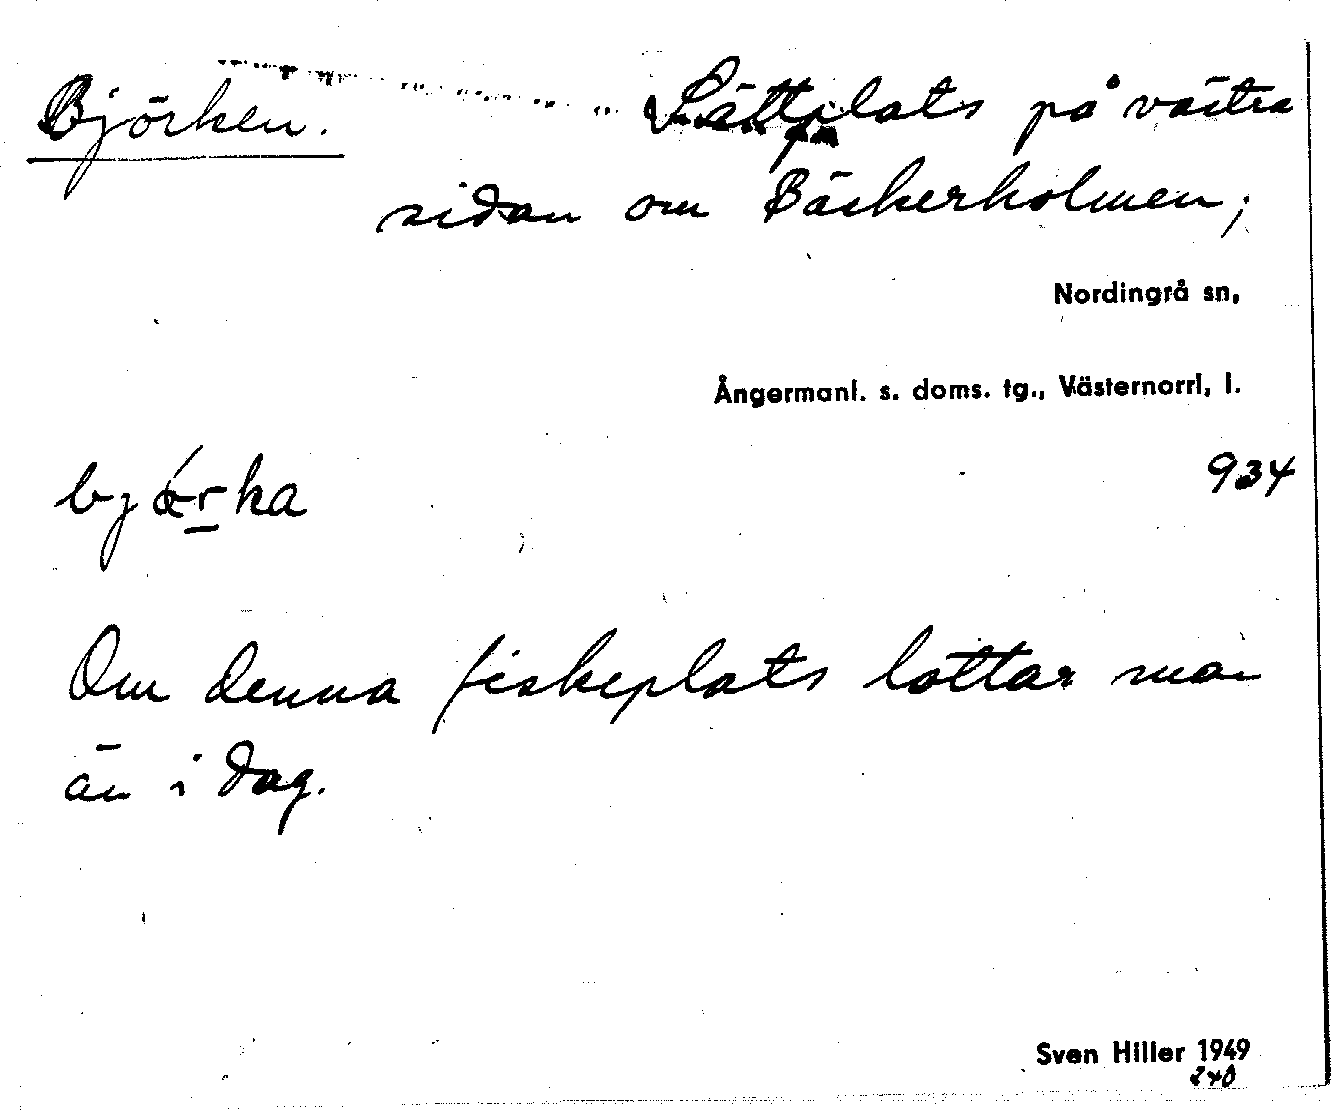 Björken.
Sättplats på västra
sidan om Bäckerholmen;
Nordingrå sn,
Ångermanl. s. doms. tg., Västernorrl, l.
934
Om denna fiskeplats lottar man
än i dag.
Sven Hiller 1949
240